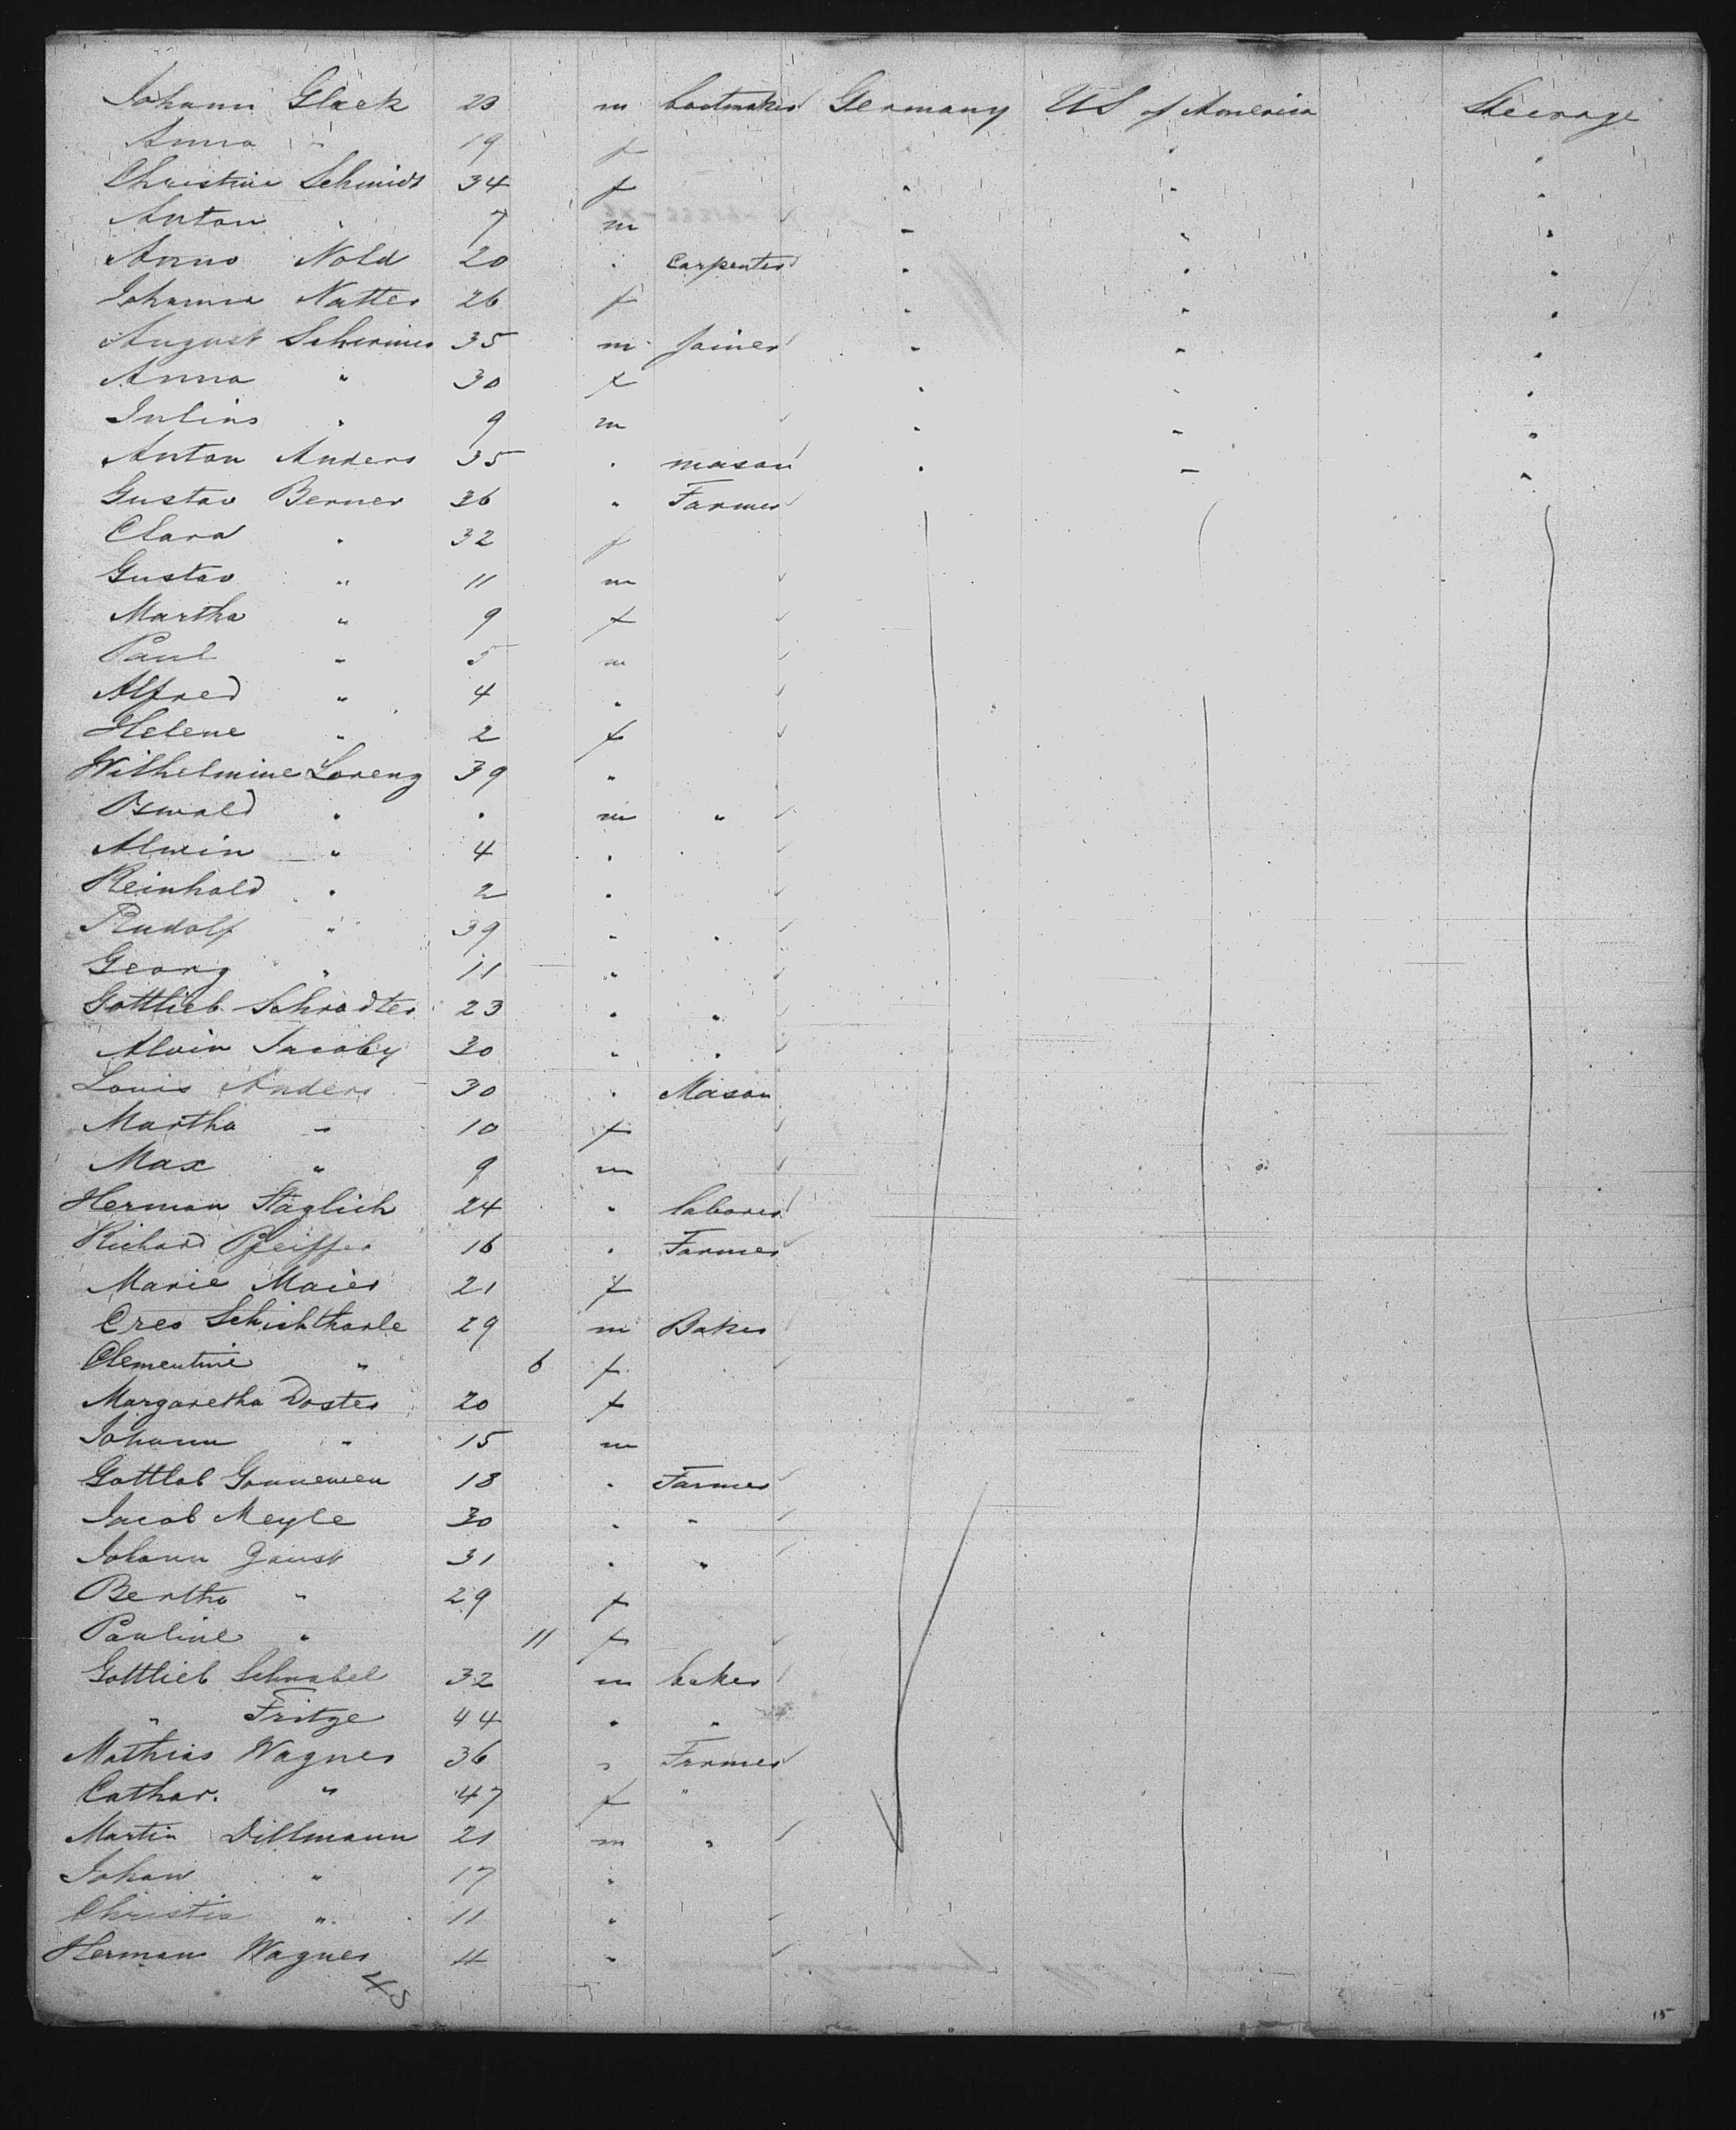 Johann Glaek 23 m bootmaker Germany US of America Steerage
Anna " 19 f " "
Christine Schmidt 34 f " " "
Anton " 7 m " " "
Anno Nold 20 " Carpenter " " "
Johanna Natter 26 f " " "
August Schirmer 35 m Joiner " " "
Anna " 30 f " " "
Julius " 9 m " " "
Anton Anders 35 " mason " " "
Gustav Berner 36 " Farmer
Clara " 32 f
Gustav " 11 m
Martha " 9 f
Paul " 5 m
Alfred " 4 "
Helene " 2 f
Wilhelmine Lorenz 39 "
Oswald " " m "
Alwin " 4 "
Reinhold " 2 "
Rudolf " 39 " "
Georg " 11 "
Gottlieb Schrodter 23 " "
Alvin Jacoby 30 " "
Louis Anders 30 " Mason
Martha " 10 f
Max " 9 m
Herman Stäglich 24 " laborer
Richard Pfeiffer 16 " Farmer
Marie Maier 21 f
Creo Schichtharle 29 m Baker
Clementine " 6 f
Margaretha Doster 20 f
Johann " 15 m
Gottlob 18 " Farmer
Jacob Meyle 30 " "
Johann Gaust 31 " "
Bertha " 29 f
Pauline " 11 f
Gottlieb Schnabel 32 m baker
" Fritze 44 " "
Mathias Wagner 36 " Farmer
Cathar. " 47 f "
Martin Dillmann 21 m "
Johan " 17 "
Christia " 11 "
Herman Wagner 11 "
48
15